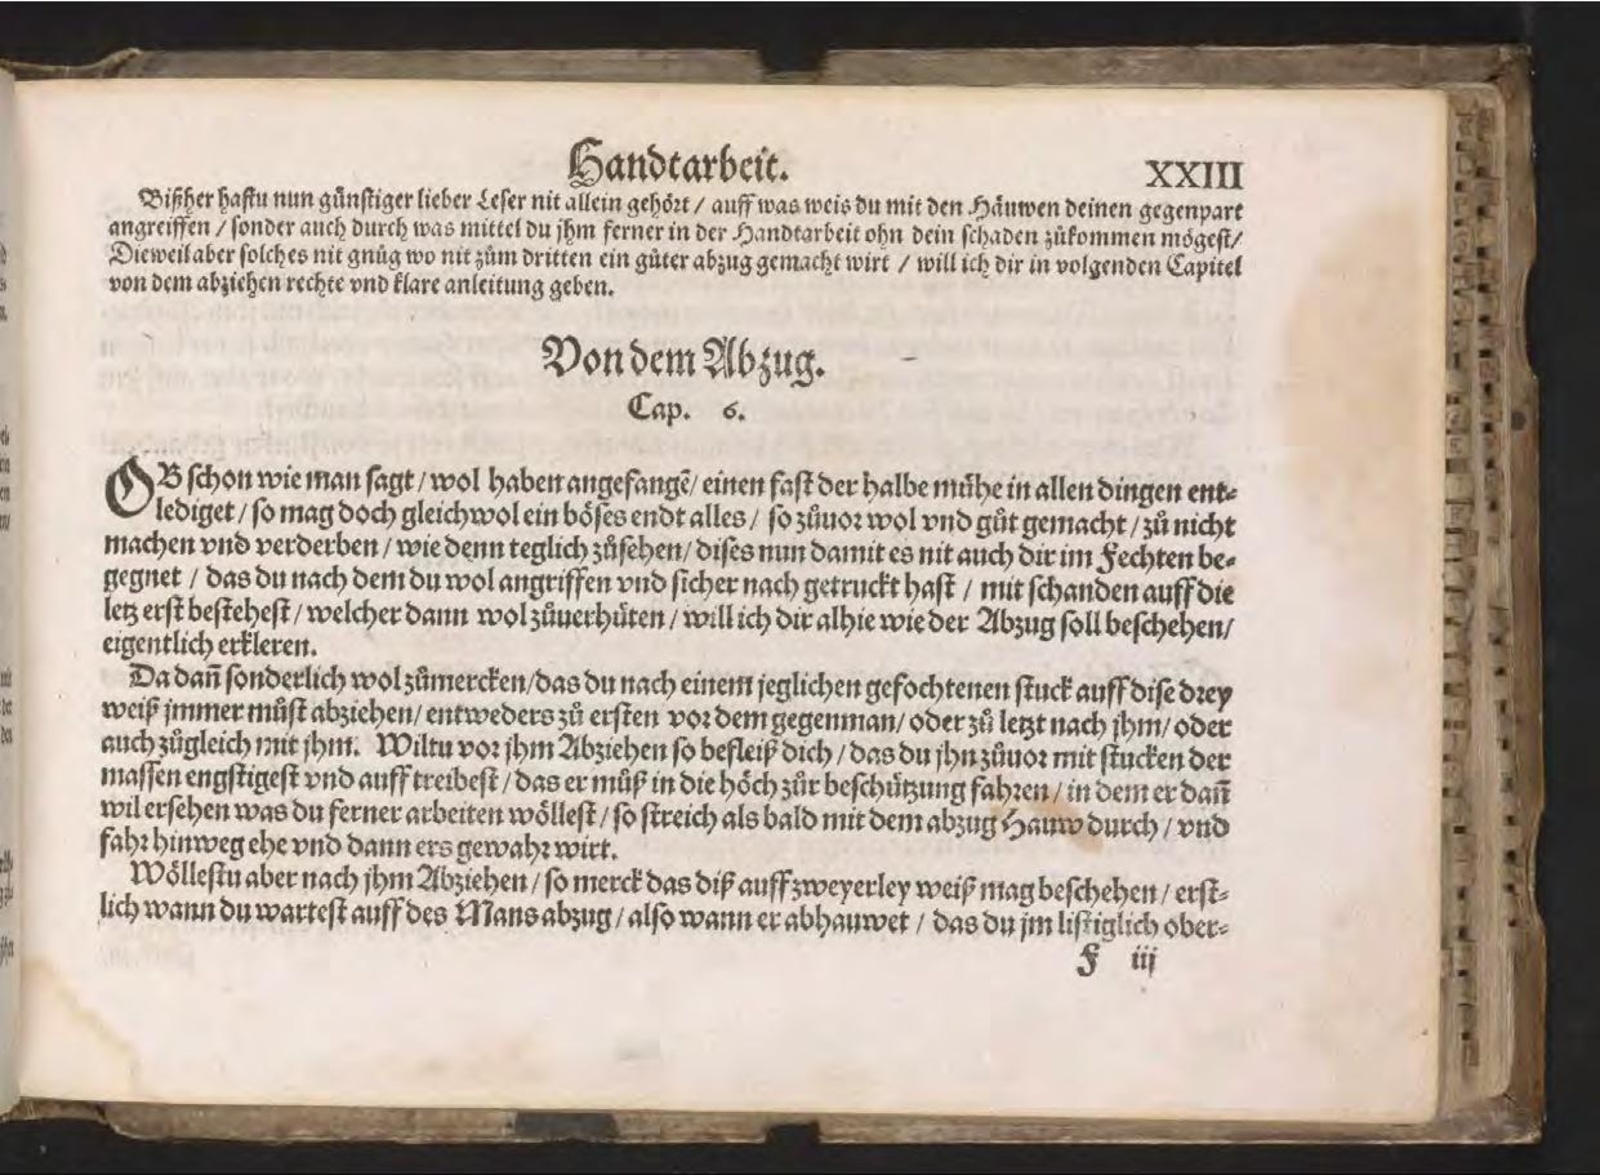 Handtarbeit. XXIII
Bißher hastu nun günstiger lieber Leser nit allein gehört / auff was weis du mit den Häuwen deinen gegenpart
angreiffen / sonder auch durch was mittel du jhm ferner in der Handtarbeit ohn dein schaden zůkommen mögest/
Dieweil aber solches nit gnůg wo nit zům dritten ein gůter abzug gemacht wirt / will ich dir in volgenden Capitel
von dem abziehen rechte vnd klare anleitung geben.
Von dem Abzug.
Cap. 6.
OB schon wie man sagt / wol haben angefangẽ / einen fast der halbe mühe in allen dingen ent-
lediget / so mag doch gleichwol ein böses endt alles / so zůuor wol vnd gůt gemacht / zů nicht
machen vnd verderben / wie denn teglich zůsehen / dises nun damit es nit auch dir im Fechten be-
gegnet / das du nach dem du wol angriffen vnd sicher nach getruckt hast / mit schanden auff die
letz erst bestehest / welcher dann wol zůuerhüten / will ich dir alhie wie der Abzug soll beschehen/
eigentlich erkleren.
Da dañ sonderlich wol zůmercken/das du nach einem jeglichen gefochtenen stuck auff dise drey
weiß jmmer můst abziehen/ entweders zů ersten vor dem gegenman/ oder zů letzt nach jhm/ oder
auch zůgleich mit jhm. Wiltu vor jhm Abziehen so befleiß dich / das du jhn zůuor mit stucken der
massen engstigest vnd auff treibest / das er můß in die höch zůr beschützung fahren / in dem er dañ
wil ersehen was du ferner arbeiten wöllest / so streich als bald mit dem abzug Hauw durch / vnd
fahr hinweg ehe vnd dann ers gewahr wirt.
Wöllestu aber nach jhm Abziehen / so merck das diß auff zweyerley weiß mag beschehen / erst-
lich wann du wartest auff des Mans abzug / also wann er abhauwet / das du jm listiglich ober-
F iij